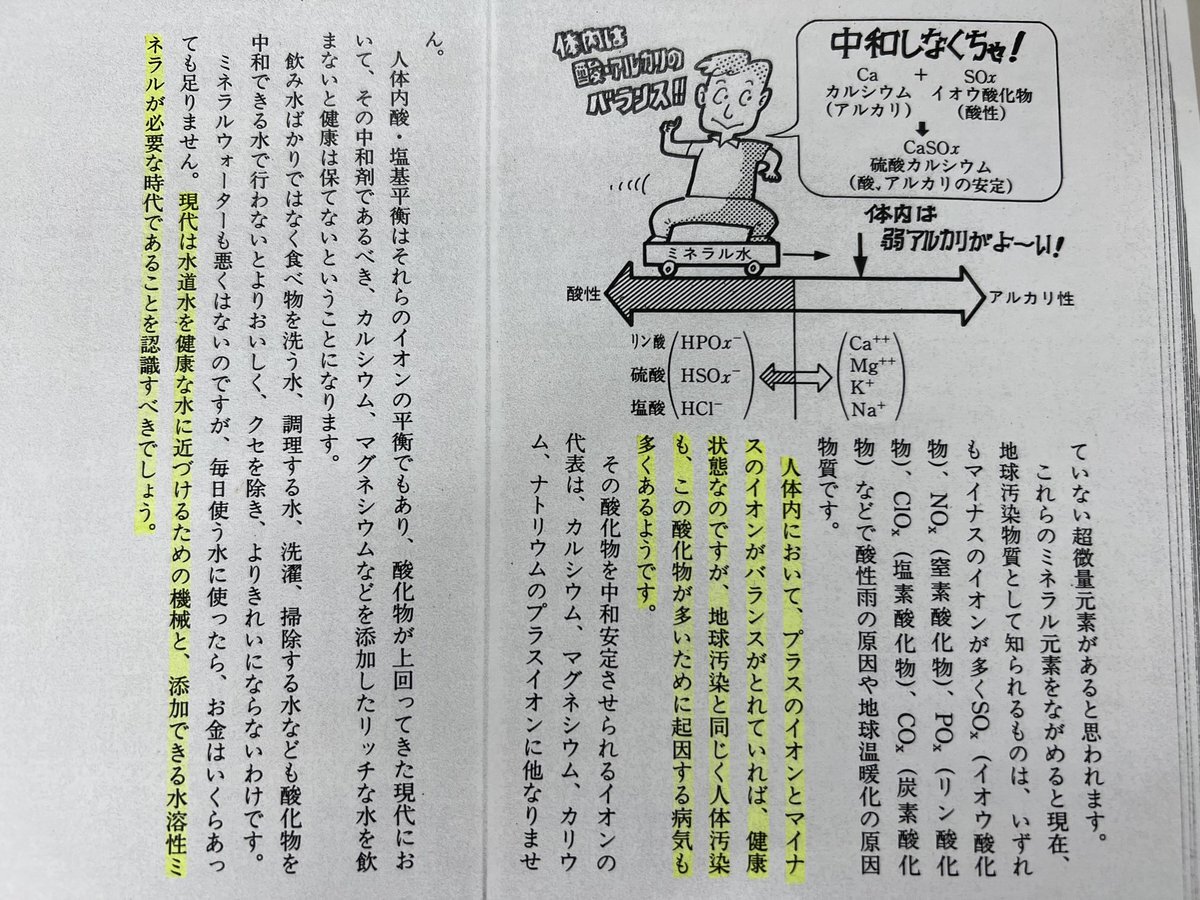 体内は
酸・アルカリの
バランス!!
中和しなくちゃ!
Ca + SOx
カルシウム イオウ酸化物
(アルカリ) (酸性)
CaSOx
硫酸カルシウム
(酸,アルカリの安定)
体内は
弱アルカリがよ〜い!
ミネラル水
酸性
アルカリ性
リン酸 HPOx⁻
硫酸 HSOx⁻
塩酸 HCl⁻
Ca⁺⁺
Mg⁺⁺
K⁺
Na⁺
ていない超微量元素があると思われます。
これらのミネラル元素をながめると現在、
地球汚染物質として知られるものは、いずれ
もマイナスのイオンが多くSOx(イオウ酸化
物)、NOx(窒素酸化物)、POx(リン酸化
物)、ClOx(塩素酸化物)、COx(炭素酸化
物)などで酸性雨の原因や地球温暖化の原因
物質です。
人体内において、プラスのイオンとマイナ
スのイオンがバランスがとれていれば、健康
状態なのですが、地球汚染と同じく人体汚染
も、この酸化物が多いために起因する病気も
多くあるようです。
その酸化物を中和安定させられるイオンの
代表は、カルシウム、マグネシウム、カリウ
ム、ナトリウムのプラスイオンに他なりませ
ん。
人体内酸・塩基平衡はそれらのイオンの平衡でもあり、酸化物が上回ってきた現代にお
いて、その中和剤であるべき、カルシウム、マグネシウムなどを添加したリッチな水を飲
まないと健康は保てないということになります。
飲み水ばかりではなく食べ物を洗う水、調理する水、洗濯、掃除する水なども酸化物を
中和できる水で行わないとよりおいしく、クセを除き、よりきれいにならないわけです。
ミネラルウォーターも悪くはないのですが、毎日使う水に使ったら、お金はいくらあっ
ても足りません。現代は水道水を健康な水に近づけるための機械と、添加できる水溶性ミ
ネラルが必要な時代であることを認識すべきでしょう。